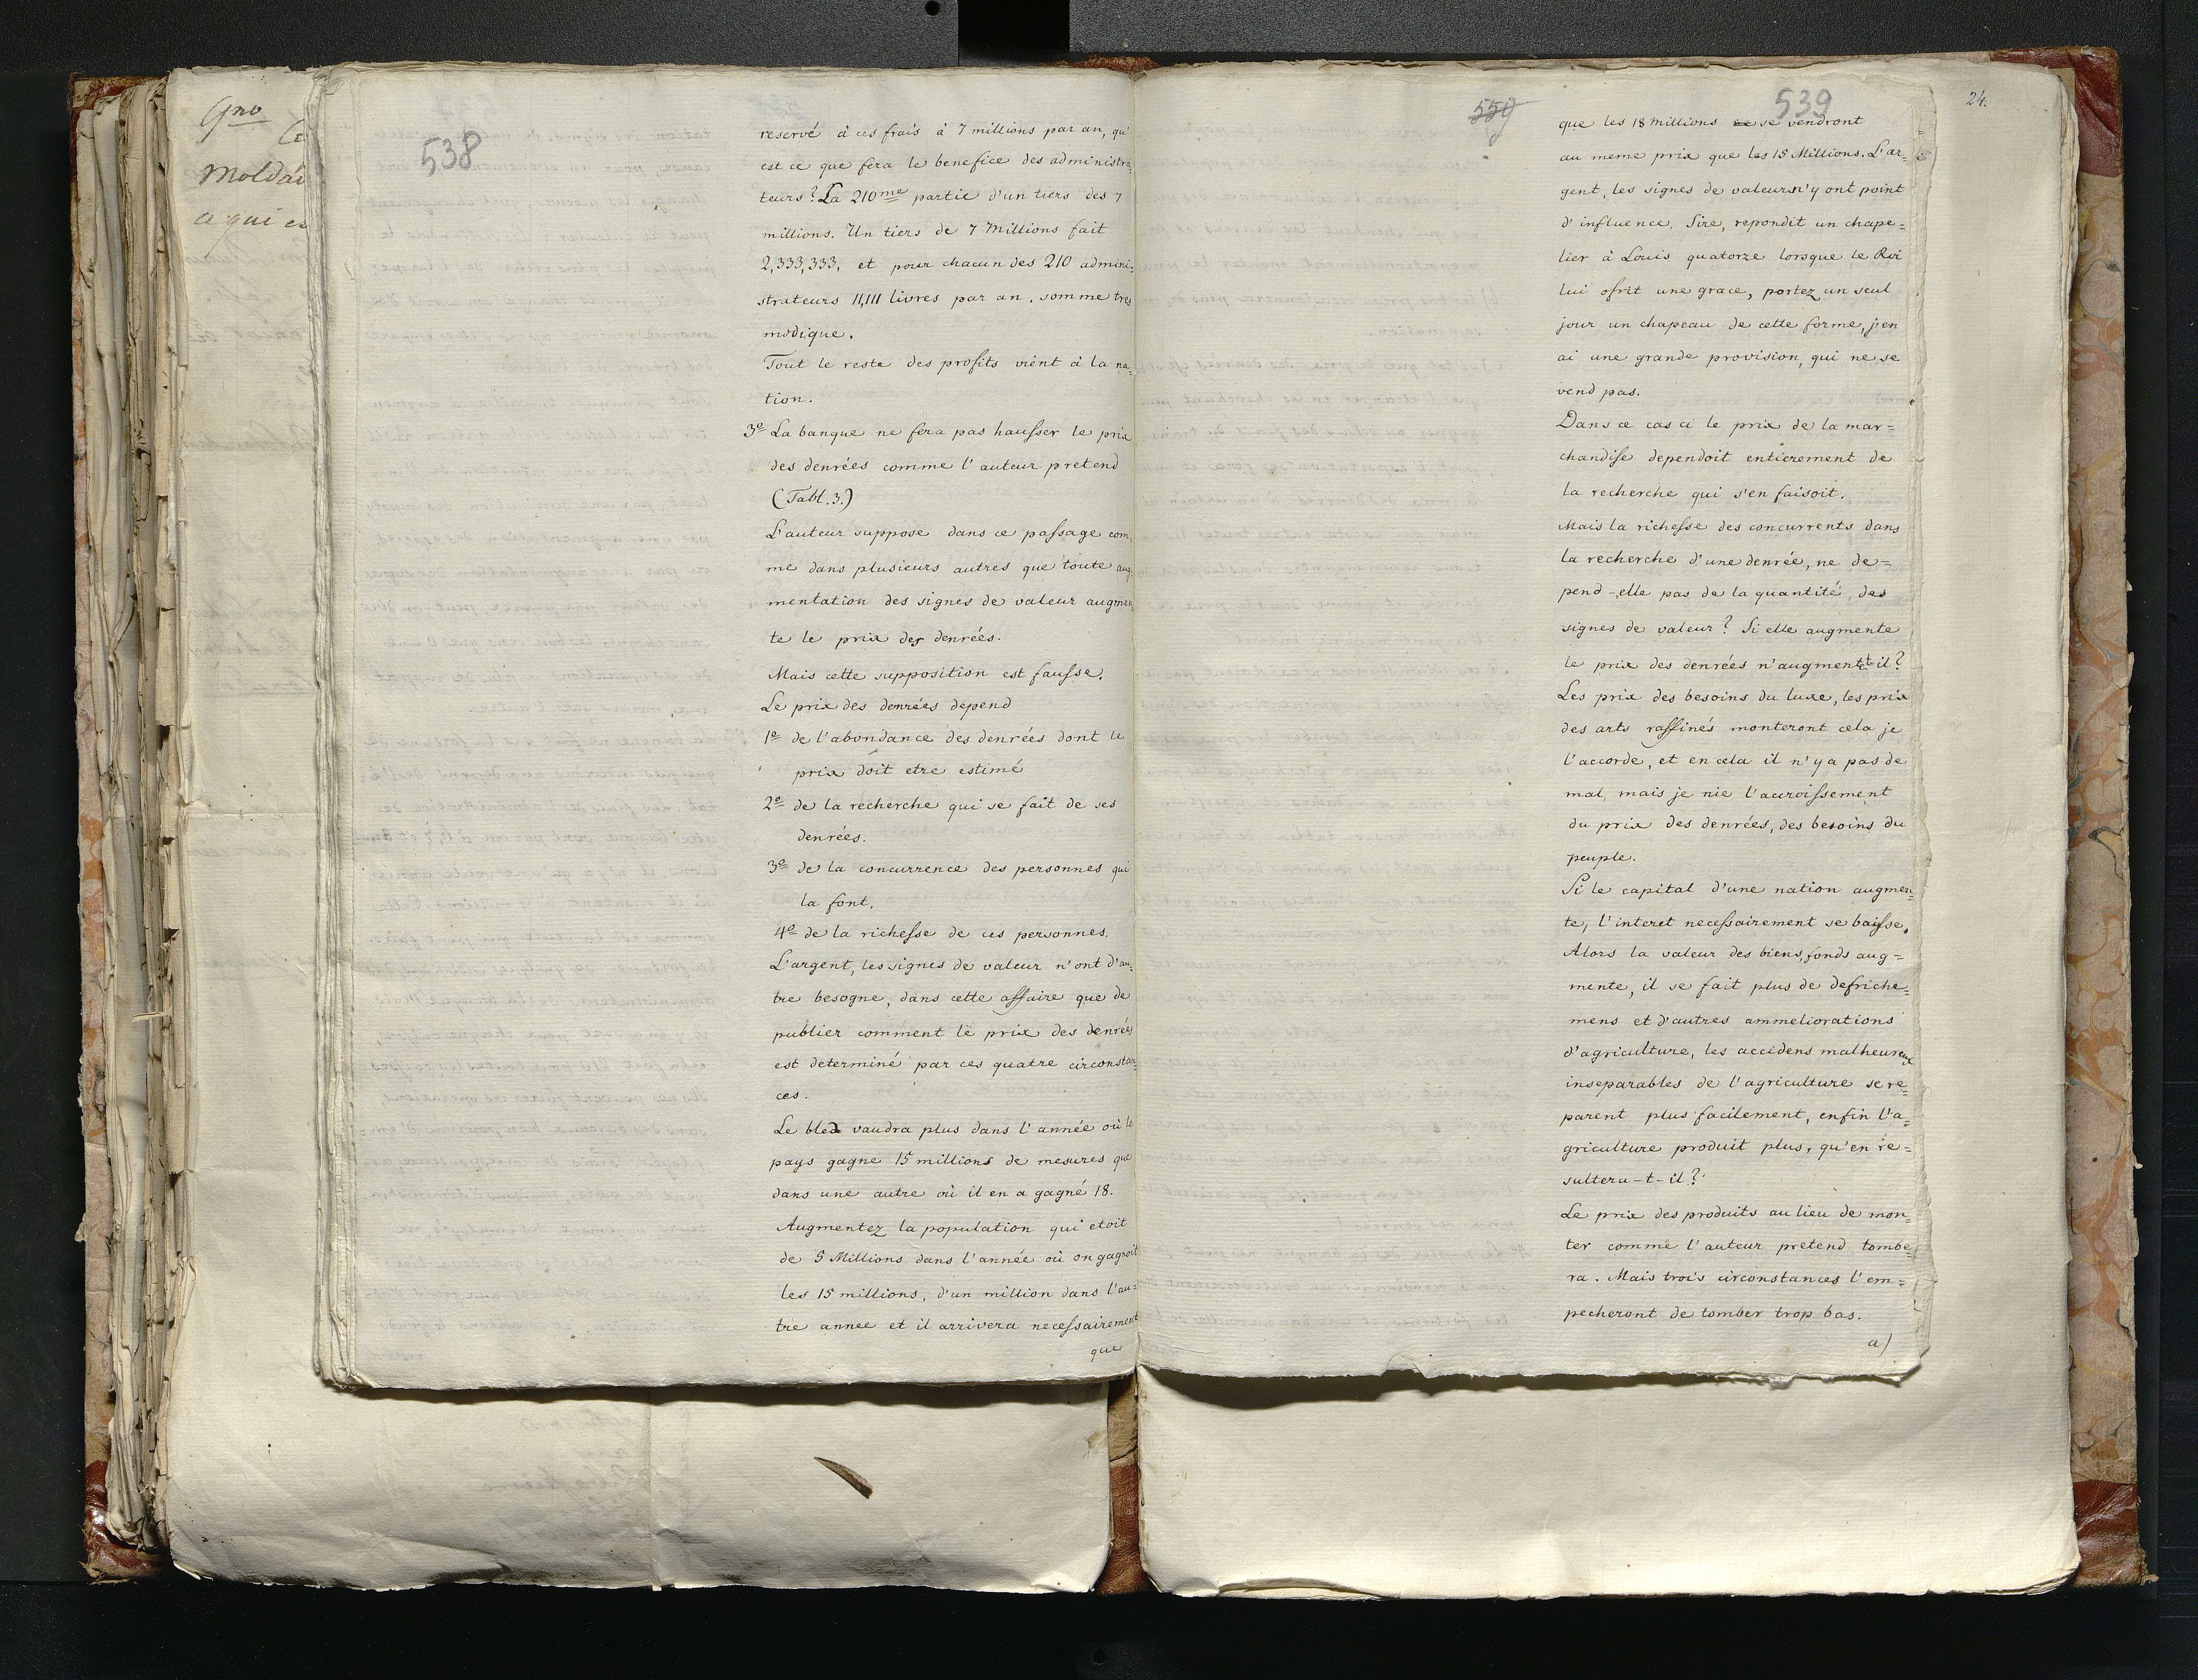 Gno
Ce
Moldav
ce qui es
538
reservé à ces frais à 7 millions par an, qu'
est ce que fera le benefice des administra-
teurs? La 210me partie d'un tiers des 7
millions. Un tiers de 7 Millions fait
2,333,333, et pour chacun des 210 admini-
strateurs 11,111 livres par an, somme tres
modique.
Tout le reste des profits vient à la na-
tion.
3o La banque ne fera pas hausser le prix
des denrées comme l'auteur pretend
(Tabl. 3.)
L'auteur suppose dans ce passage com-
me dans plusieurs autres que toute aug-
mentation des signes de valeur augmen-
te le prix des denrées.
Mais cette supposition est fausse.
Le prix des denrées depend
1o de l'abondance des denrées dont le
prix doit etre estimé
2o de la recherche qui se fait de ses
denrées.
3o de la concurrence des personnes qui
la font,
4o de la richesse de ces personnes.
L'argent, les signes de valeur n'ont d'au-
tre besogne, dans cette affaire que de
publier comment le prix des denrées
est determiné par ces quatre circonstan-
ces.
Le bled vaudra plus dans l'année où le
pays gagne 15 millions de mesures que
dans une autre où il en a gagné 18.
Augmentez la population qui etoit
de 5 Millions dans l'année où on gagnoit
les 15 millions, d'un million dans l'au-
tre annee et il arrivera necessairement
que
539
24.
que les 18 millions se vendront
au meme prix que les 15 Millions. L'ar-
gent, les signes de valeurs n'y ont point
d'influence, Sire, repondit un chape-
lier à Louis quatorze lorsque le Roi
lui ofrit une grace, portez un seul
jour un chapeau de cette forme, j'en
ai une grande provision, qui ne se
vend pas.
Dans ce cas ci le prix de la mar-
chandise dependoit entierement de
la recherche qui s'en faisoit.
Mais la richesse des concurrents dans
la recherche d'une denrée, ne de-
pend-elle pas de la quantité des
signes de valeur? Si elle augmente
le prix des denrées n'augmente t il?
Les prix des besoins du luxe, les prix
des arts raffinés monteront cela je
l'accorde, et en cela il n'y a pas de
mal, mais je nie l'accroissement
du prix des denrées, des besoins du
peuple.
Si le capital d'une nation augmen-
te, l'interet necessairement se baisse.
Alors la valeur des biens fonds aug-
mente, il se fait plus de defriche-
mens et d'autres ammeliorations
d'agriculture, les accidens malheureux
inseparables de l'agriculture se re-
parent plus facilement, enfin l'a-
griculture produit plus, qu'en re-
sultera-t-il?
Le prix des produits au lieu de mon-
ter comme l'auteur pretend tombe-
ra. Mais trois circonstances l'em-
pecheront de tomber trop bas.
a)